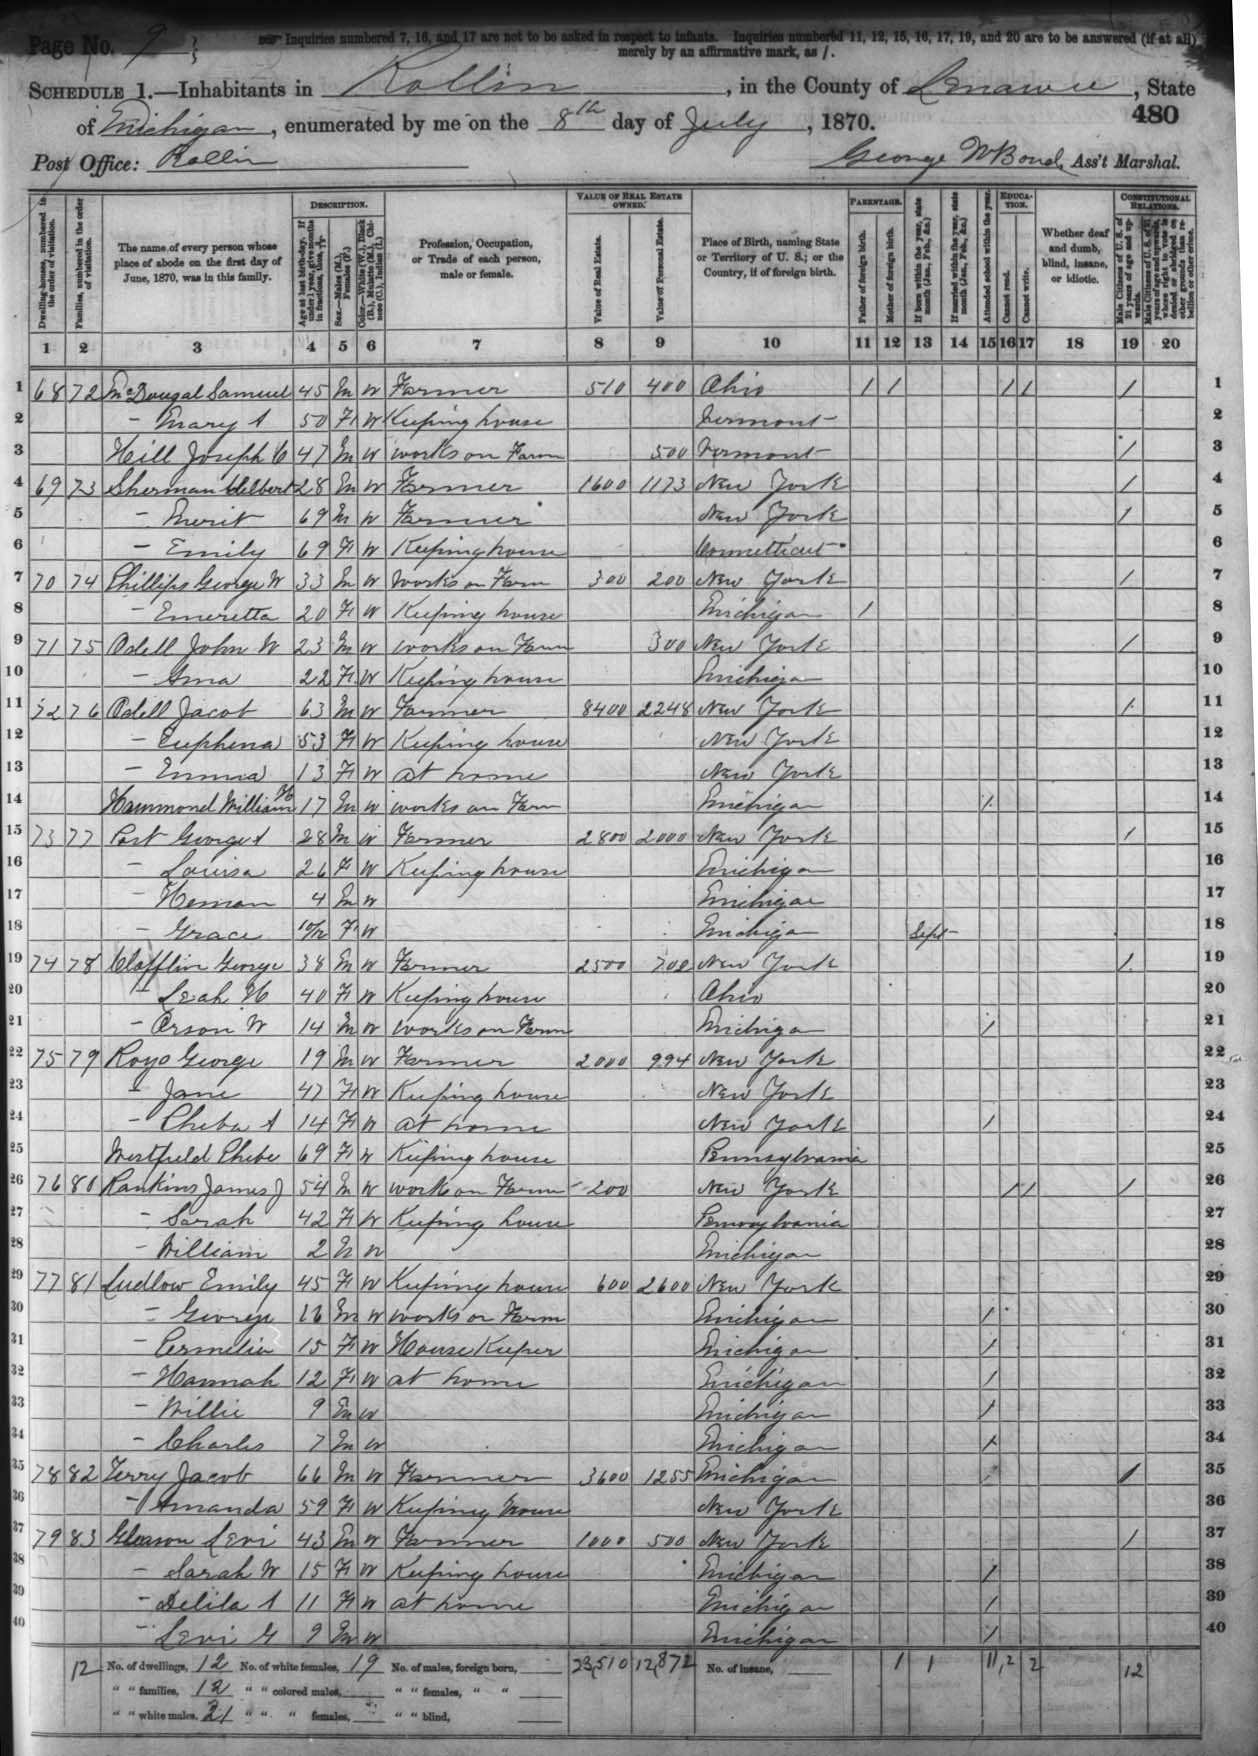 Page No. 9
Inquiries numbered 7, 16, and 17 are not to be asked in respect to infants. Inquiries numbered 11, 12, 15, 16, 17, 19, and 20 are to be answered (if at all)
merely by an affirmative mark, as /.
SCHEDULE 1.—Inhabitants in Rollin, in the County of Lenawee, State
of Michigan, enumerated by me on the 8th day of July, 1870.
480
Post Office: Rollin
George W Bond, Ass't Marshal.
Dwelling-houses, numbered in the order of visitation.
Families, numbered in the order of visitation.
The name of every person whose place of abode on the first day of June, 1870, was in this family.
DESCRIPTION.
Age at last birth-day. If under 1 year, give months in fractions, thus, 3/12
Sex.—Males (M.), Females (F.)
Color.—White (W.), Black (B.), Mulatto (M.), Chinese (C.), Indian (I.)
Profession, Occupation, or Trade of each person, male or female.
VALUE OF REAL ESTATE OWNED.
Value of Real Estate.
Value of Personal Estate.
Place of Birth, naming State or Territory of U. S.; or the Country, if of foreign birth.
PARENTAGE.
Father of foreign birth.
Mother of foreign birth.
If born within the year, state month (Jan., Feb., &c.)
If married within the year, state month (Jan., Feb., &c.)
Attended school within the year.
EDUCATION.
Cannot read.
Cannot write.
Whether deaf and dumb, blind, insane, or idiotic.
CONSTITUTIONAL RELATIONS.
Male Citizens of U. S. of 21 years of age and upwards.
Male Citizens of U. S. of 21 years of age and upwards, whose right to vote is denied or abridged on other grounds than rebellion or other crime.
1 2 3 4 5 6 7 8 9 10 11 12 13 14 15 16 17 18 19 20
1 68 72 McDougal Samuel 45 M W Farmer 510 400 Ohio / / / / / 1
2 — Mary A 50 F W Keeping house Vermont 2
3 Hill Joseph C 47 M W works on Farm 500 Vermont / 3
4 69 73 Sherman 28 M W Farmer 1600 1173 New York / 4
5 — Merit 69 M W Farmer New York / 5
6 — Emily 69 F W Keeping house Connetticut 6
7 70 74 Phillips George W 33 M W Works on Farm 300 200 New York / 7
8 — Emeretta 20 F W Keeping house Michigan / 8
9 71 75 Odell John W 23 M W works on Farm 300 New York / 9
10 — 22 F W Keeping house Michigan 10
11 72 76 Odell Jacob 63 M W Farmer 8400 2248 New York / 11
12 — Euphena 53 F W Keeping house New York 12
13 — Emma 13 F W at home New York 13
14 Hammond William H 17 M W works on Farm Michigan / 14
15 73 77 Post George A 28 M W Farmer 2800 2000 New York / 15
16 — Louisa 26 F W Keeping house Michigan 16
17 — Heman 4 M W Michigan 17
18 — Grace 10/12 F W Michigan Sept 18
19 74 78 Clafflin George 38 M W Farmer 2500 700 New York / 19
20 — Leah H 40 F W Keeping house Ohio 20
21 — Orson W 14 M W works on Farm Michigan / 21
22 75 79 George 19 M W Farmer 2000 994 New York 22
23 — Jane 47 F W Keeping house New York 23
24 — Pheba A 14 F W at home New York / 24
25 Westfield Phebe 69 F W Keeping house Pennsylvania 25
26 76 80 Rankins James J 54 M W work on Farm 200 New York / / / 26
27 — Sarah 42 F W Keeping house Pennsylvania 27
28 — William 2 M W Michigan 28
29 77 81 Ludlow Emily 45 F W Keeping house 600 2600 New York 29
30 — George 16 M W works on Farm Michigan / 30
31 — Permelia 15 F W House Keeper Michigan / 31
32 — Hannah 12 F W at home Michigan / 32
33 — Willie 9 M W Michigan / 33
34 — Charles 7 M W Michigan / 34
35 78 82 Terry Jacob 66 M W Farmer 3600 1255 Michigan / 35
36 — Amanda 59 F W Keeping house New York 36
37 79 83 Gleason Levi 43 M W Farmer 1000 500 New York / 37
38 — Sarah W 15 F W Keeping house Michigan / 38
39 — Delila A 11 F W at home Michigan / 39
40 — Levi G 9 M W Michigan / 40
12 No. of dwellings, 12 No. of white females, 19 No. of males, foreign born, 23,510 12,872 No. of insane, 1 1 11 2 2 12
" " families, 12 " " colored males, " " females, " "
" " white males, 21 " " " females, " " blind,